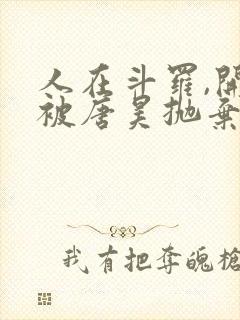 人在斗羅,開
被唐昊拋棄
我有把奪魄槍